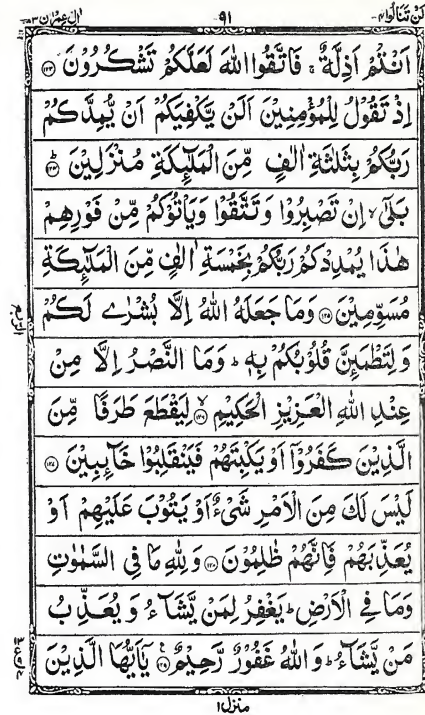 لَنْ تَنَالُوا ٤
٩١
اٰلِ عِمْرٰن ٣
اَنْتُمْ اَذِلَّةٌ ۚ فَاتَّقُوا اللّٰهَ لَعَلَّكُمْ تَشْكُرُوْنَ ﴿۱۲۳﴾
اِذْ تَقُوْلُ لِلْمُؤْمِنِيْنَ اَلَنْ يَّكْفِيَكُمْ اَنْ يُّمِدَّكُمْ
رَبُّكُمْ بِثَلٰثَةِ اٰلٰفٍ مِّنَ الْمَلٰٓئِكَةِ مُنْزَلِيْنَ ؕ﴿۱۲۴﴾
بَلٰٓى ۙ اِنْ تَصْبِرُوْا وَتَتَّقُوْا وَيَاْتُوْكُمْ مِّنْ فَوْرِهِمْ
هٰذَا يُمْدِدْكُمْ رَبُّكُمْ بِخَمْسَةِ اٰلٰفٍ مِّنَ الْمَلٰٓئِكَةِ
مُسَوِّمِيْنَ ﴿۱۲۵﴾ وَمَا جَعَلَهُ اللّٰهُ اِلَّا بُشْرٰى لَكُمْ
وَلِتَطْمَئِنَّ قُلُوْبُكُمْ بِهٖ ؕ وَمَا النَّصْرُ اِلَّا مِنْ
عِنْدِ اللّٰهِ الْعَزِيْزِ الْحَكِيْمِ ۙ﴿۱۲۶﴾ لِيَقْطَعَ طَرَفًا مِّنَ
الَّذِيْنَ كَفَرُوْٓا اَوْ يَكْبِتَهُمْ فَيَنْقَلِبُوْا خَآئِبِيْنَ ﴿۱۲۷﴾
لَيْسَ لَكَ مِنَ الْاَمْرِ شَىْءٌ اَوْ يَتُوْبَ عَلَيْهِمْ اَوْ
يُعَذِّبَهُمْ فَاِنَّهُمْ ظٰلِمُوْنَ ﴿۱۲۸﴾ وَلِلّٰهِ مَا فِى السَّمٰوٰتِ
وَمَا فِى الْاَرْضِ ؕ يَغْفِرُ لِمَنْ يَّشَآءُ وَيُعَذِّبُ
مَنْ يَّشَآءُ ؕ وَاللّٰهُ غَفُوْرٌ رَّحِيْمٌ ﴿۱۲۹﴾ يٰٓاَيُّهَا الَّذِيْنَ
الربع
منزل ١